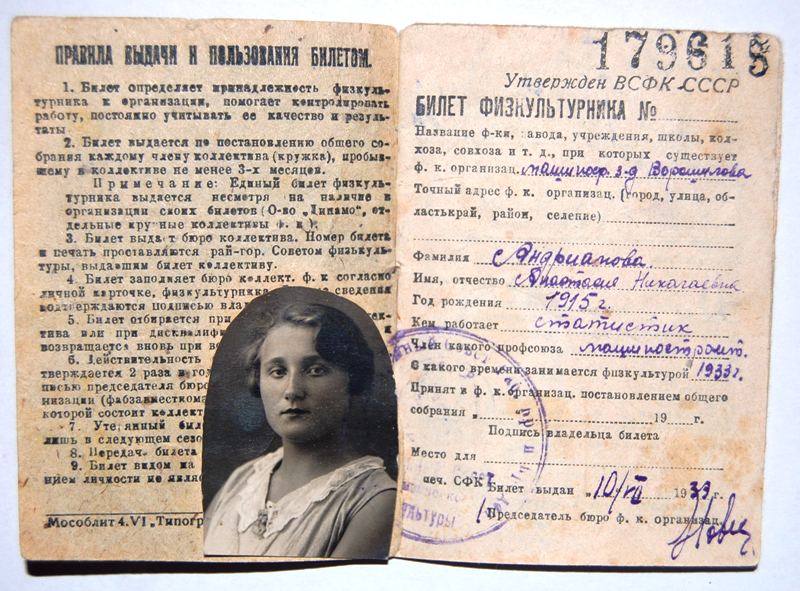 ПРАВИЛА ВЫДАЧИ И ПОЛЬЗОВАНИЯ БИЛЕТОМ.
1. Билет определяет принадлежность физкуль-
турника к организации, помогает контролировать
работу, постоянно учитывать ее качество и резуль-
таты.
2. Билет выдается по постановлению общего со-
брания каждому члену коллектива (кружка), пробыв-
шему в коллективе не менее 3-х месяцев.
Примечание: Единый билет физкуль-
турника выдается несмотря на наличие в
организации своих билетов (О-во „Динамо“, от-
дельные крупные коллективы ф. к.)
3. Билет выдает бюро коллектива. Номер билета
и печать проставляются рай-гор. Советом физкуль-
туры, выдавшим билет коллективу.
4. Билет заполняет бюро коллект. ф. к. согласно
личной карточке, физкультурника. сведения
подтверждаются подписью
5. Билет отбирается при
тива или при дисквалиф
возвращается вновь при
6. Действительность
тверждается 2 раза в год
писью председателя бюро
низации (фабзавместкома
которой состоит коллект
7. Утерянный бил
лишь в следующем сезо
8. Передач. билета
9. Билет видом на
нием личности не явля
Мособлит 4. VI „Типогр
179618
Утвержден ВСФК СССР
БИЛЕТ ФИЗКУЛЬТУРНИКА №
Название ф-ки, завода, учреждения, школы, кол-
хоза, совхоза и т. д., при которых существует
ф. к. организац. з-д Ворошилова
Точный адрес ф. к. организац. (город, улица, об-
ласть край, район, селение)
Фамилия Андрианова
Имя, отчество Анастасия Николаевна
Год рождения 1915 г.
Кем работает статистик
Член какого профсоюза машиностроит.
С какого времени занимается физкультурой 1933 г.
Принят в ф. к. организац. постановлением общего
собрания „ “ 19 г.
Подпись владельца билета
Место для
печ. СФК Билет выдан „10/VII 1933 г.
Председатель бюро ф. к. организац.
культуры